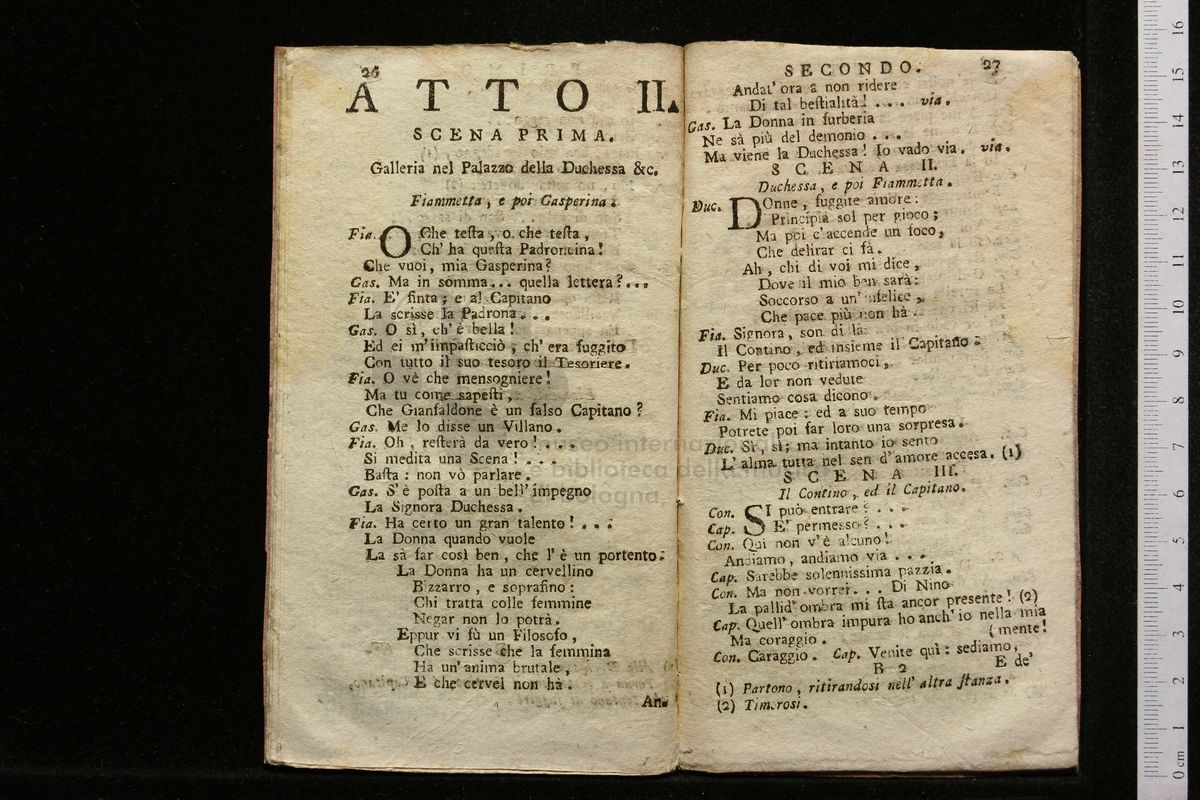 26
ATTO II.
SCENA PRIMA.
Galleria nel Palazzo della Duchessa &c.
Fiammetta, e poi Gasperina.
Fia. O Che testa, o che testa,
Ch' ha questa Padroncina!
Che vuoi, mia Gasperina?
Gas. Ma in somma... quella lettera?...
Fia. E' finta; e al Capitano
La scrisse la Padrona...
Gas. O sì, ch' è bella!
Ed ei m'impasticciò, ch' era fuggito
Con tutto il suo tesoro il Tesoriere.
Fia. O vè che mensogniere!
Ma tu come sapesti,
Che Gianfaldone è un falso Capitano?
Gas. Me lo disse un Villano.
Fia. Oh, resterà da vero!...
Si medita una Scena!...
Basta: non vò parlare.
Gas. S' è posta a un bell' impegno
La Signora Duchessa.
Fia. Ha certo un gran talento!...
La Donna quando vuole
La sà far così ben, che l' è un portento:
La Donna ha un cervellino
Bizzarro, e soprafino:
Chi tratta colle femmine
Negar non lo potrà.
Eppur vi fù un Filosofo,
Che scrisse che la femmina
Ha un' anima brutale,
E che cervel non ha.
An-
SECONDO. 27
Andat' ora a non ridere
Di tal bestialità!... via.
Gas. La Donna in furberia
Ne sà più del demonio...
Ma viene la Duchessa! Io vado via. via.
SCENA II.
Duchessa, e poi Fiammetta.
Duc. DOnne, fuggite amore:
Principia sol per gioco;
Ma poi c'accende un foco,
Che delirar ci fà.
Ah, chi di voi mi dice,
Dove il mio ben sarà:
Soccorso a un' infelice,
Che pace più non hà.
Fia. Signora, son di là
Il Contino, ed insieme il Capitano:
Duc. Per poco ritiriamoci,
E da lor non vedute
Sentiamo cosa dicono.
Fia. Mi piace: ed a suo tempo
Potrete poi far loro una sorpresa.
Duc. Sì, sì; ma intanto io sento
L' alma tutta nel sen d'amore accesa. (1)
SCENA III.
Il Contino, ed il Capitano.
Con. SI può entrare?...
Cap. E' permesso?...
Con. Qui non v' è alcuno!
Andiamo, andiamo via...
Cap. Sarebbe solennissima pazzia.
Con. Ma non vorrei... Di Nino
La pallid' ombra mi sta ancor presente! (2)
Cap. Quell' ombra impura ho anch' io nella mia
(mente!
Ma coraggio.
Con. Caraggio. Cap. Venite quì: sediamo,
B 2 E de'
(1) Partono, ritirandosi nell' altra stanza.
(2) Timorosi.
museo internazionale
e biblioteca della musica
di Bologna